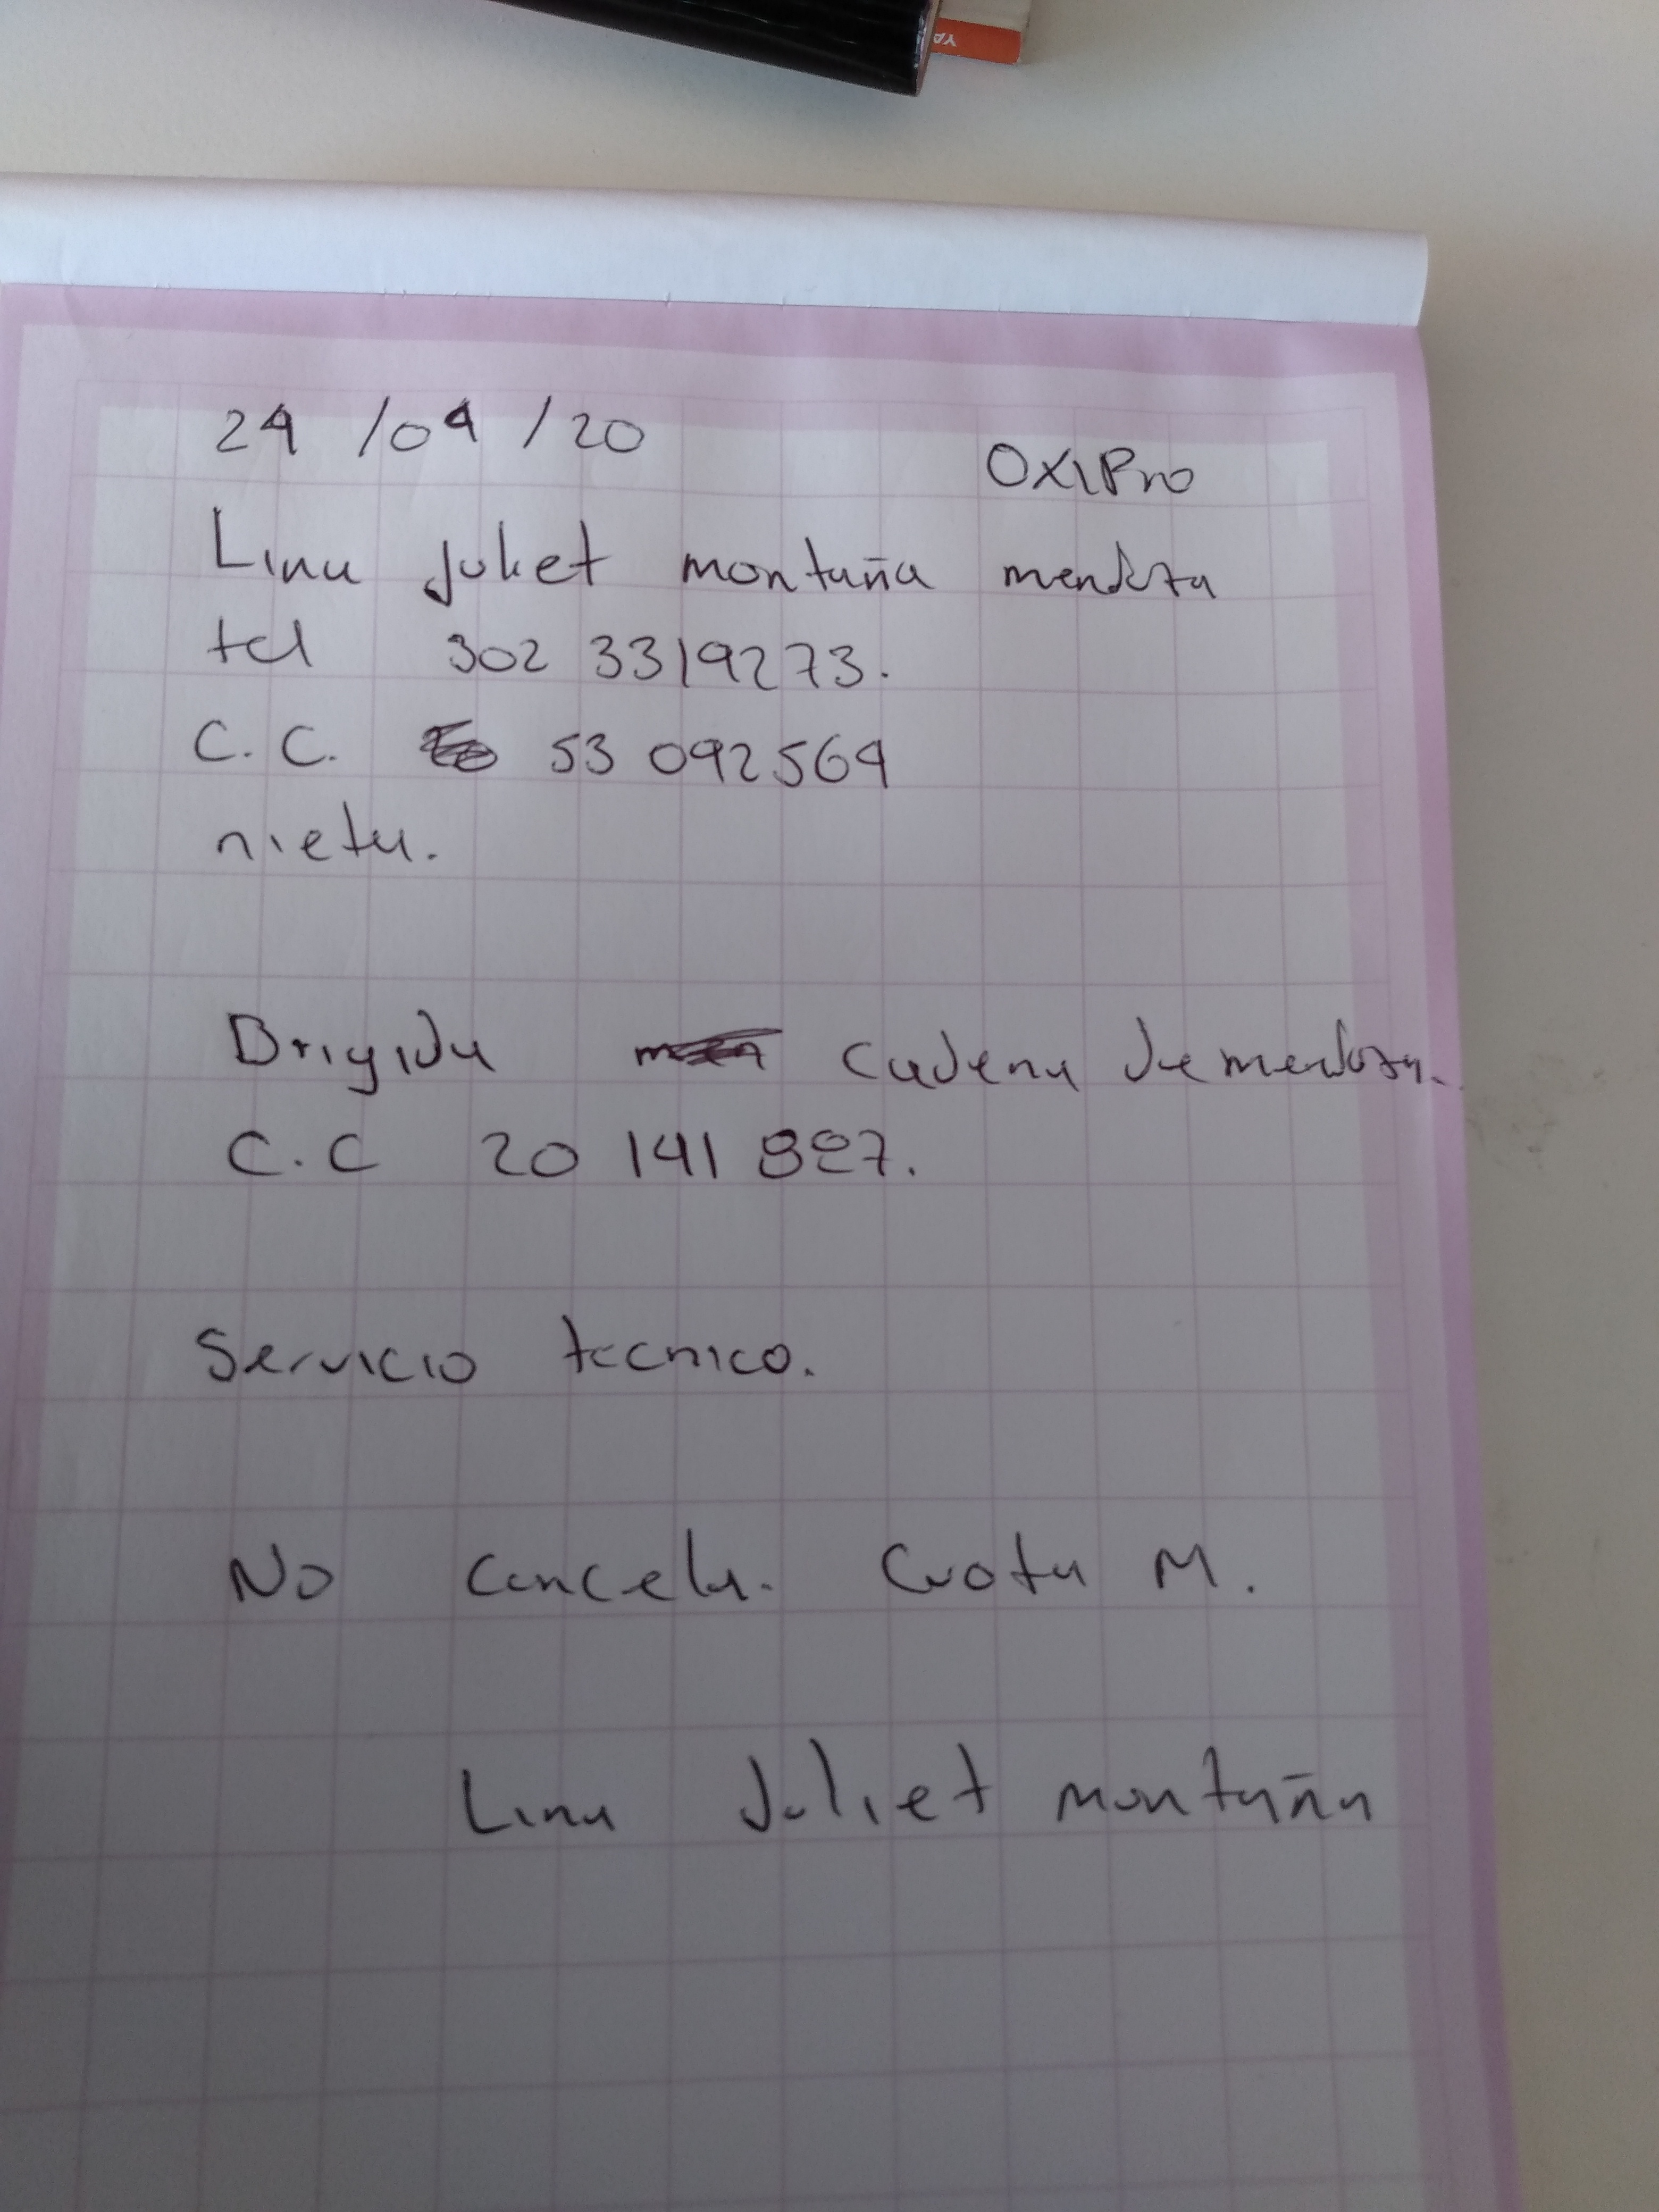 24 /04 /20
OXIPro
Lina Juliet montaña mendoza
tel 302 3319273.
C.C. 53 092564
nieta.
Brigida cadena de mendoza.
C.C 20 141 827.
Servicio tecnico.
No cancela. Cuota M.
Lina Juliet montaña